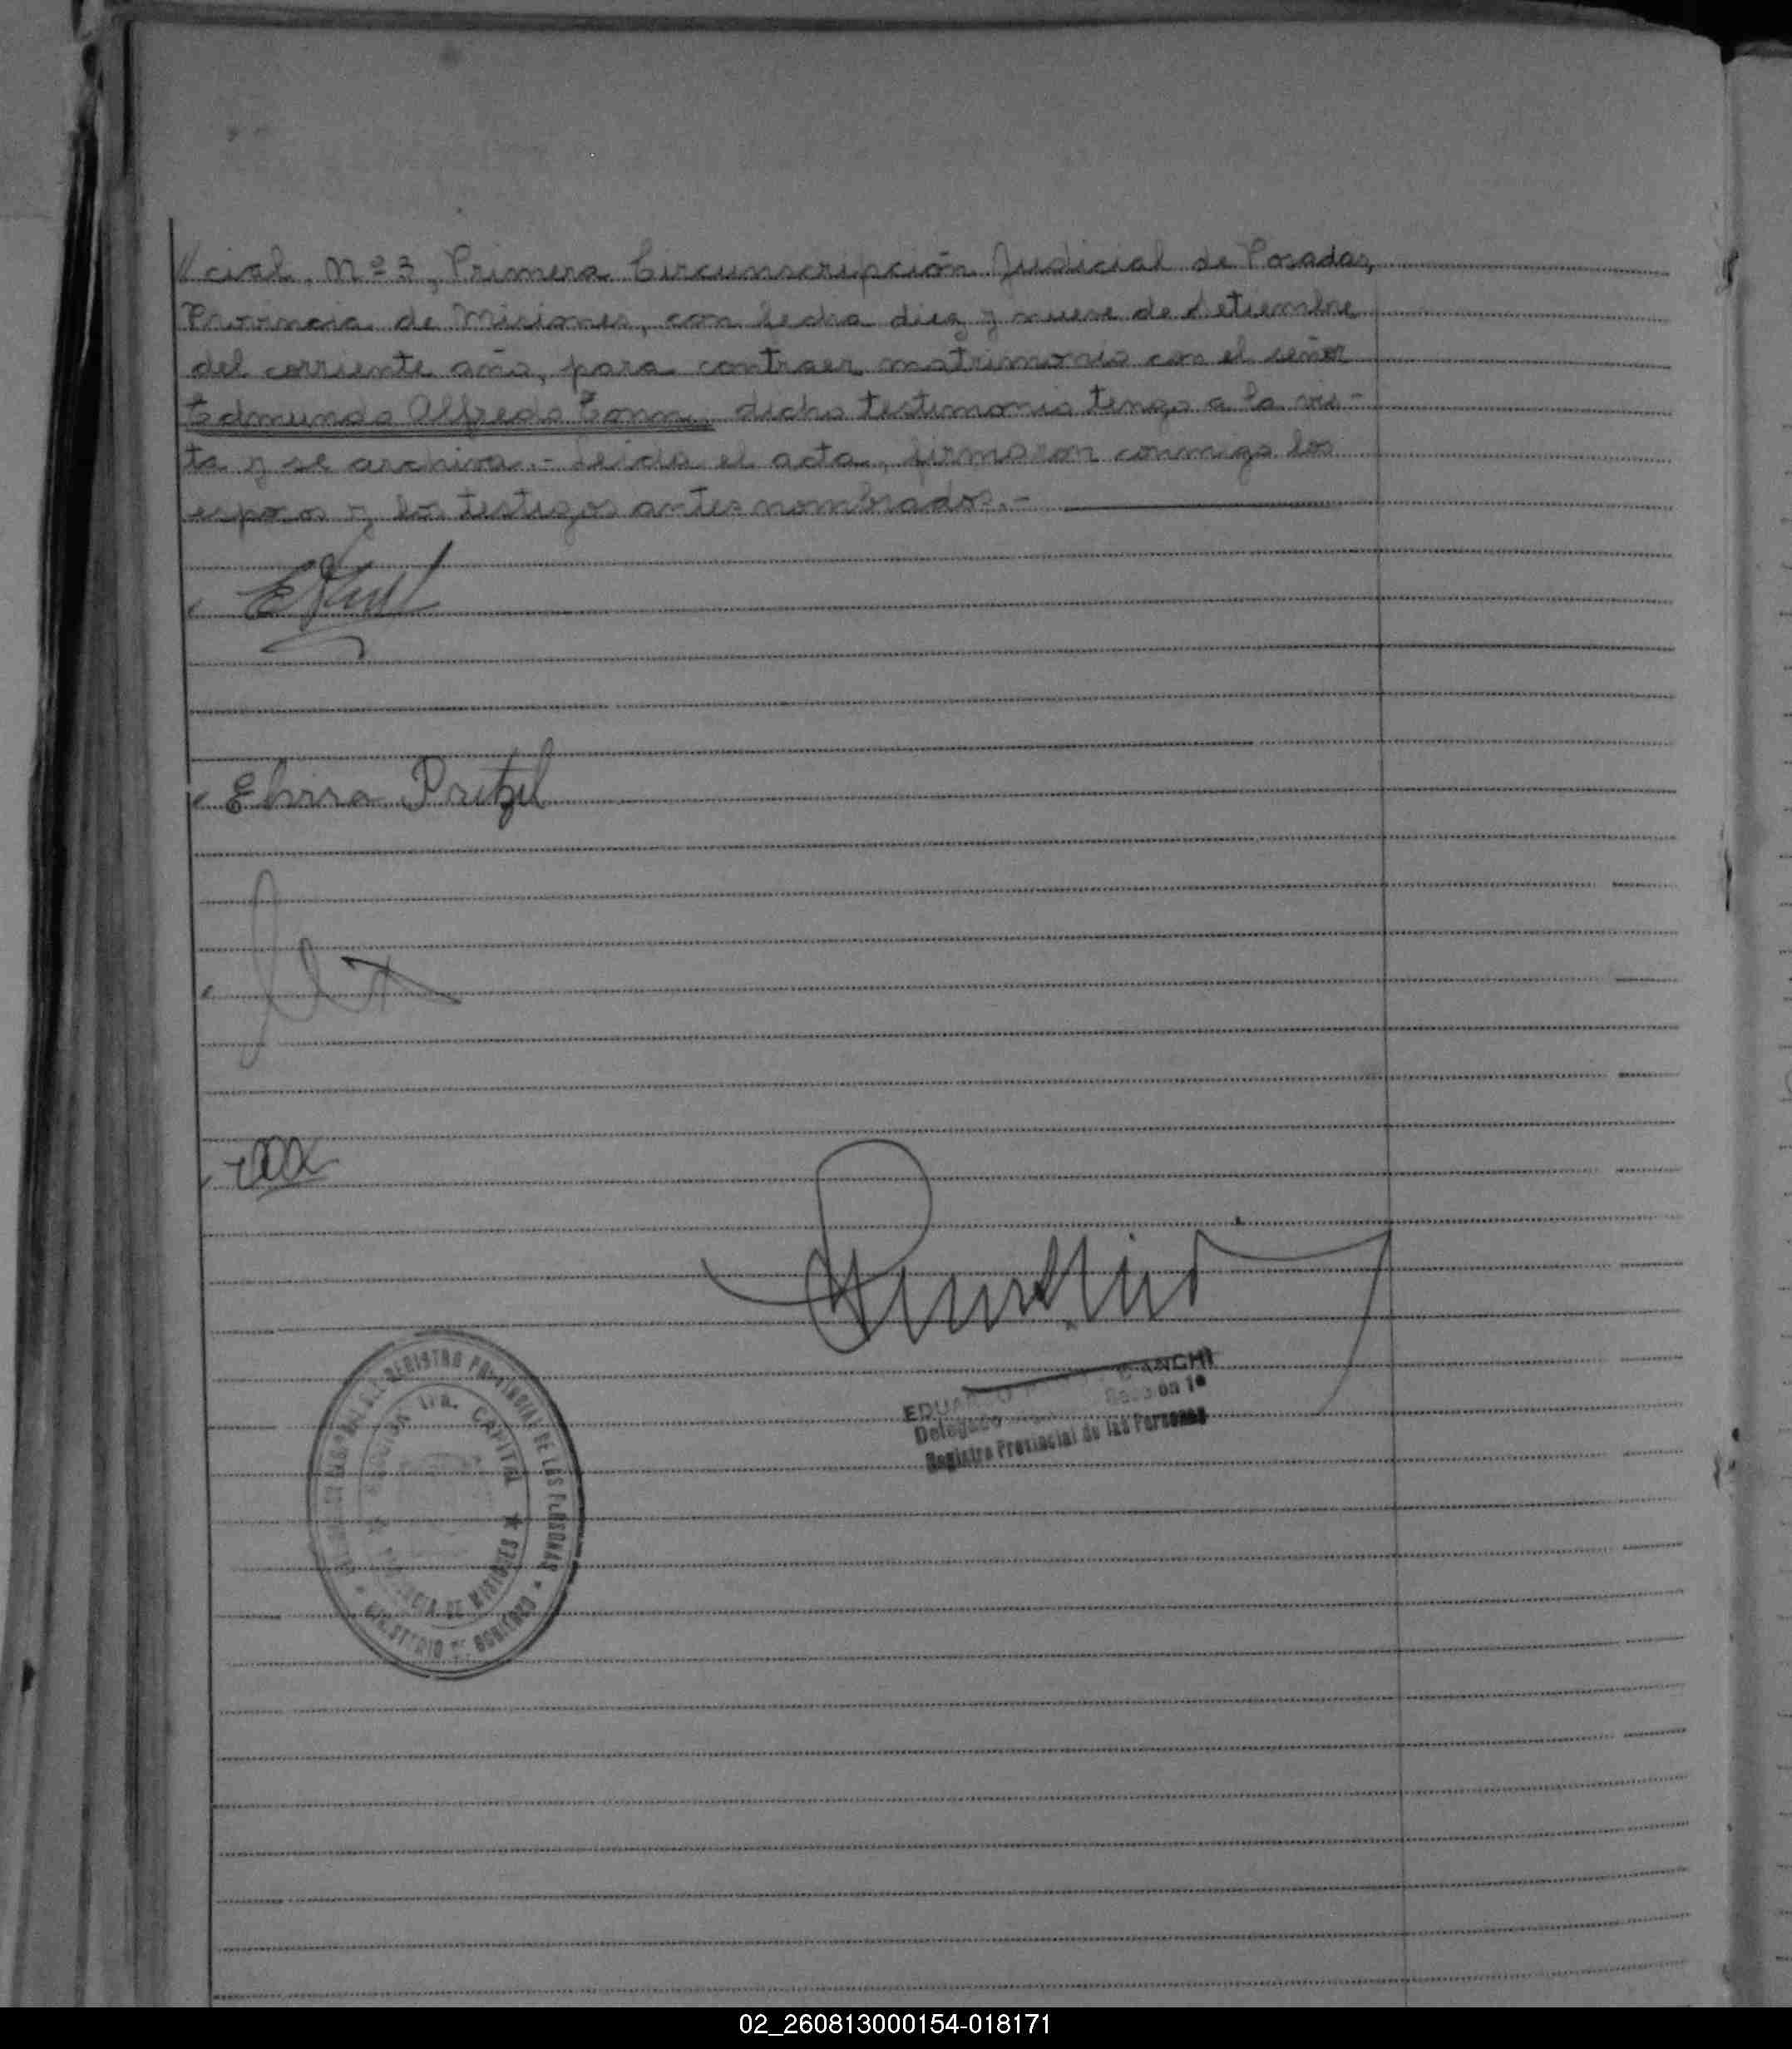 //cial, Nº 3, Primera Circunscripción Judicial de Posadas,
Provincia de Misiones, con fecha diez y nueve de setiembre
del corriente año, para contraer matrimonio con el señor
Edmundo Alfredo dicho testimonio tengo a la vis-
ta y se archiva.- Leida el acta, firmaron conmigo los
esposos y los testigos antes nombrados.-
Elvira Pretzel
Delegado Sección 1ª
Registro Provincial de las Personas
REGISTRO PROVINCIAL DE LAS PERSONAS
1ra. CAPITAL
PROVINCIA DE MISIONES
MINISTERIO DE GOBIERNO
02_260813000154-018171